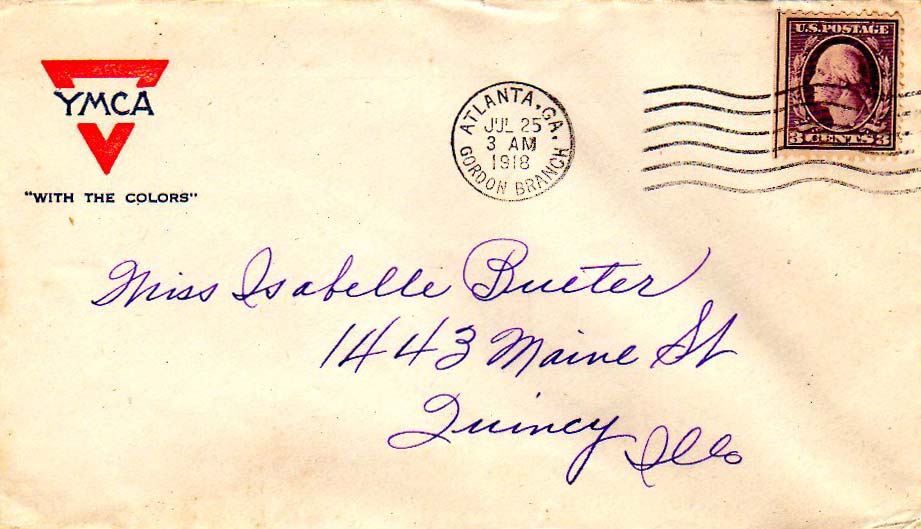 YMCA
"WITH THE COLORS"
ATLANTA, GA.
JUL 25
3 AM
1918
GORDON BRANCH
U.S. POSTAGE
3 CENTS 3
Miss Isabelle Bueter
1443 Maine St
Quincy Ills